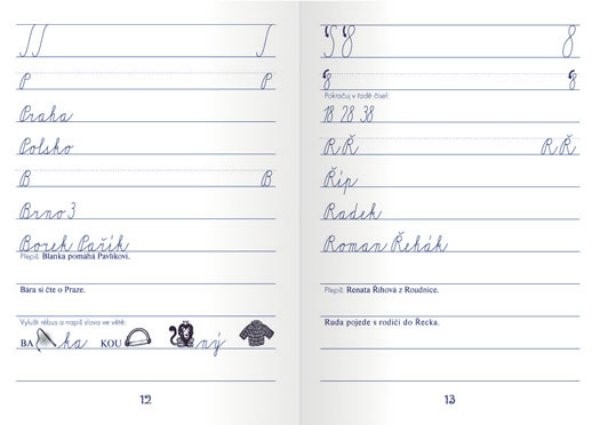 P P
Praha
Polsko
B B
Brno 3
Borek Pařík
Přepiš: Blanka pomáhá Pavlíkovi.
Bára si čte o Praze.
Vylušti rébus a napiš slova ve větě:
BA ka KOU ný
12
8
8 8
Pokračuj v řadě čísel:
18 28 38
R Ř R Ř
Říp
Radek
Roman Řehák
Přepiš: Renata Říhová z Roudnice.
Ruda pojede s rodiči do Řecka.
13